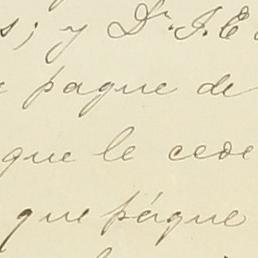 s; y Dr. J. E
pague de
que le cede
que págue